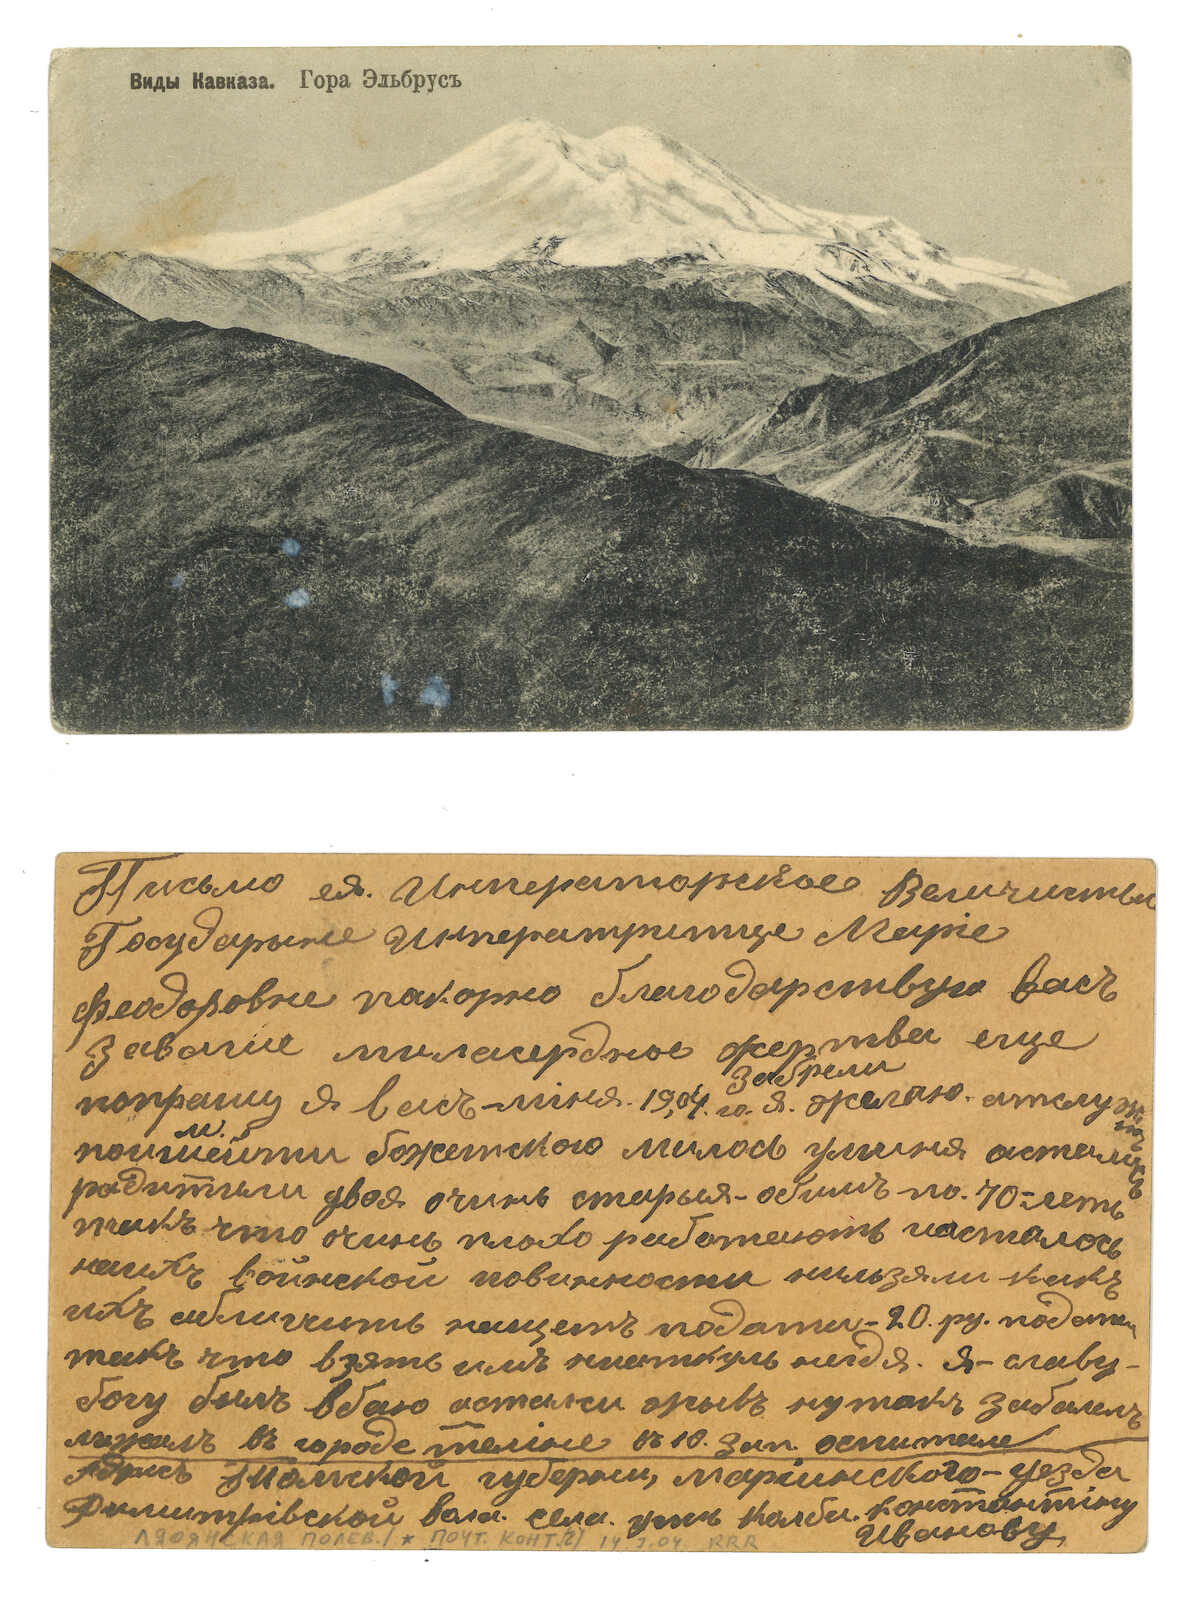 Виды Кавказа. Гора Эльбрусъ
Письмо ея. Императорское Величиства
Государыне Императритце Марiе
Феодоровне пакорно благодарствую васъ
Завашие миласердное жертва еще
попрашу я васъ-мiня. 19,04. го. забрели я. желаю. атслужить
помнейти божетского милось уминя астались
радители двоя очинь старыя-обимъ-по. 70-леть
такъ что очинь плохо работають насталось
наихъ воинской повинности нильзяли какъ
ихъ аблигчить нащетъ подати-20. ру. подати
такъ что взять имъ ниаткуль негдя. я-славу-
богу былъ вбаю астался живъ нутакъ забалелъ
лижалъ въ городе телiне въ 10. зап. оспитале
Адрисъ Томской губерни, марiинского-уезда
Димитрiвской вала. села. усть Колби. Константiну
Иванову,
ЛЯОЯНСКАЯ ПОЛЕВ. / * ПОЧТ. КОНТ. /2/ 14 . 04. RRR